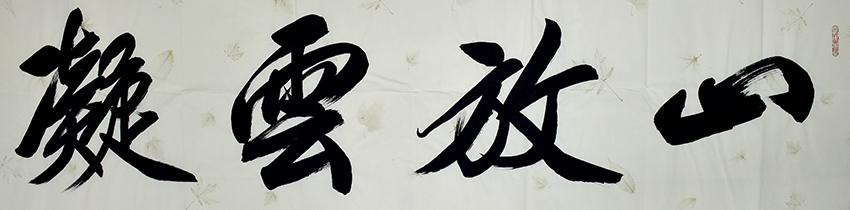 山放雲凝